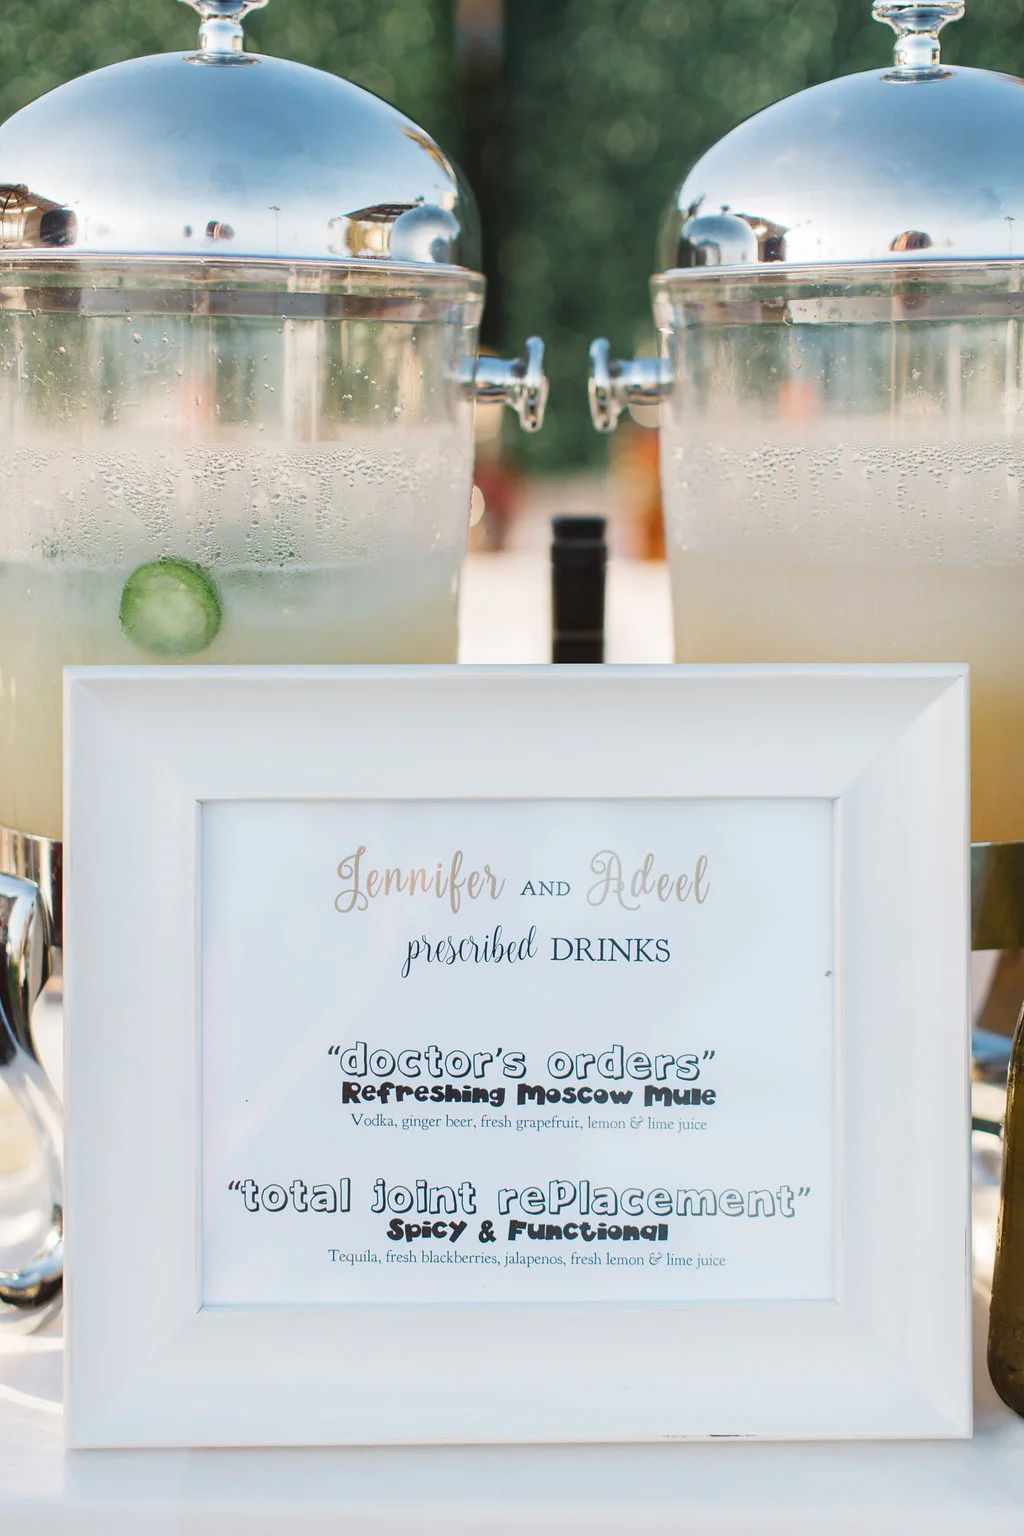 Jennifer AND Adeel
prescribed DRINKS
“doctor’s orders”
Refreshing Moscow Mule
Vodka, ginger beer, fresh grapefruit, lemon & lime juice
“total joint rePlacement”
Spicy & Functional
Tequila, fresh blackberries, jalapenos, fresh lemon & lime juice